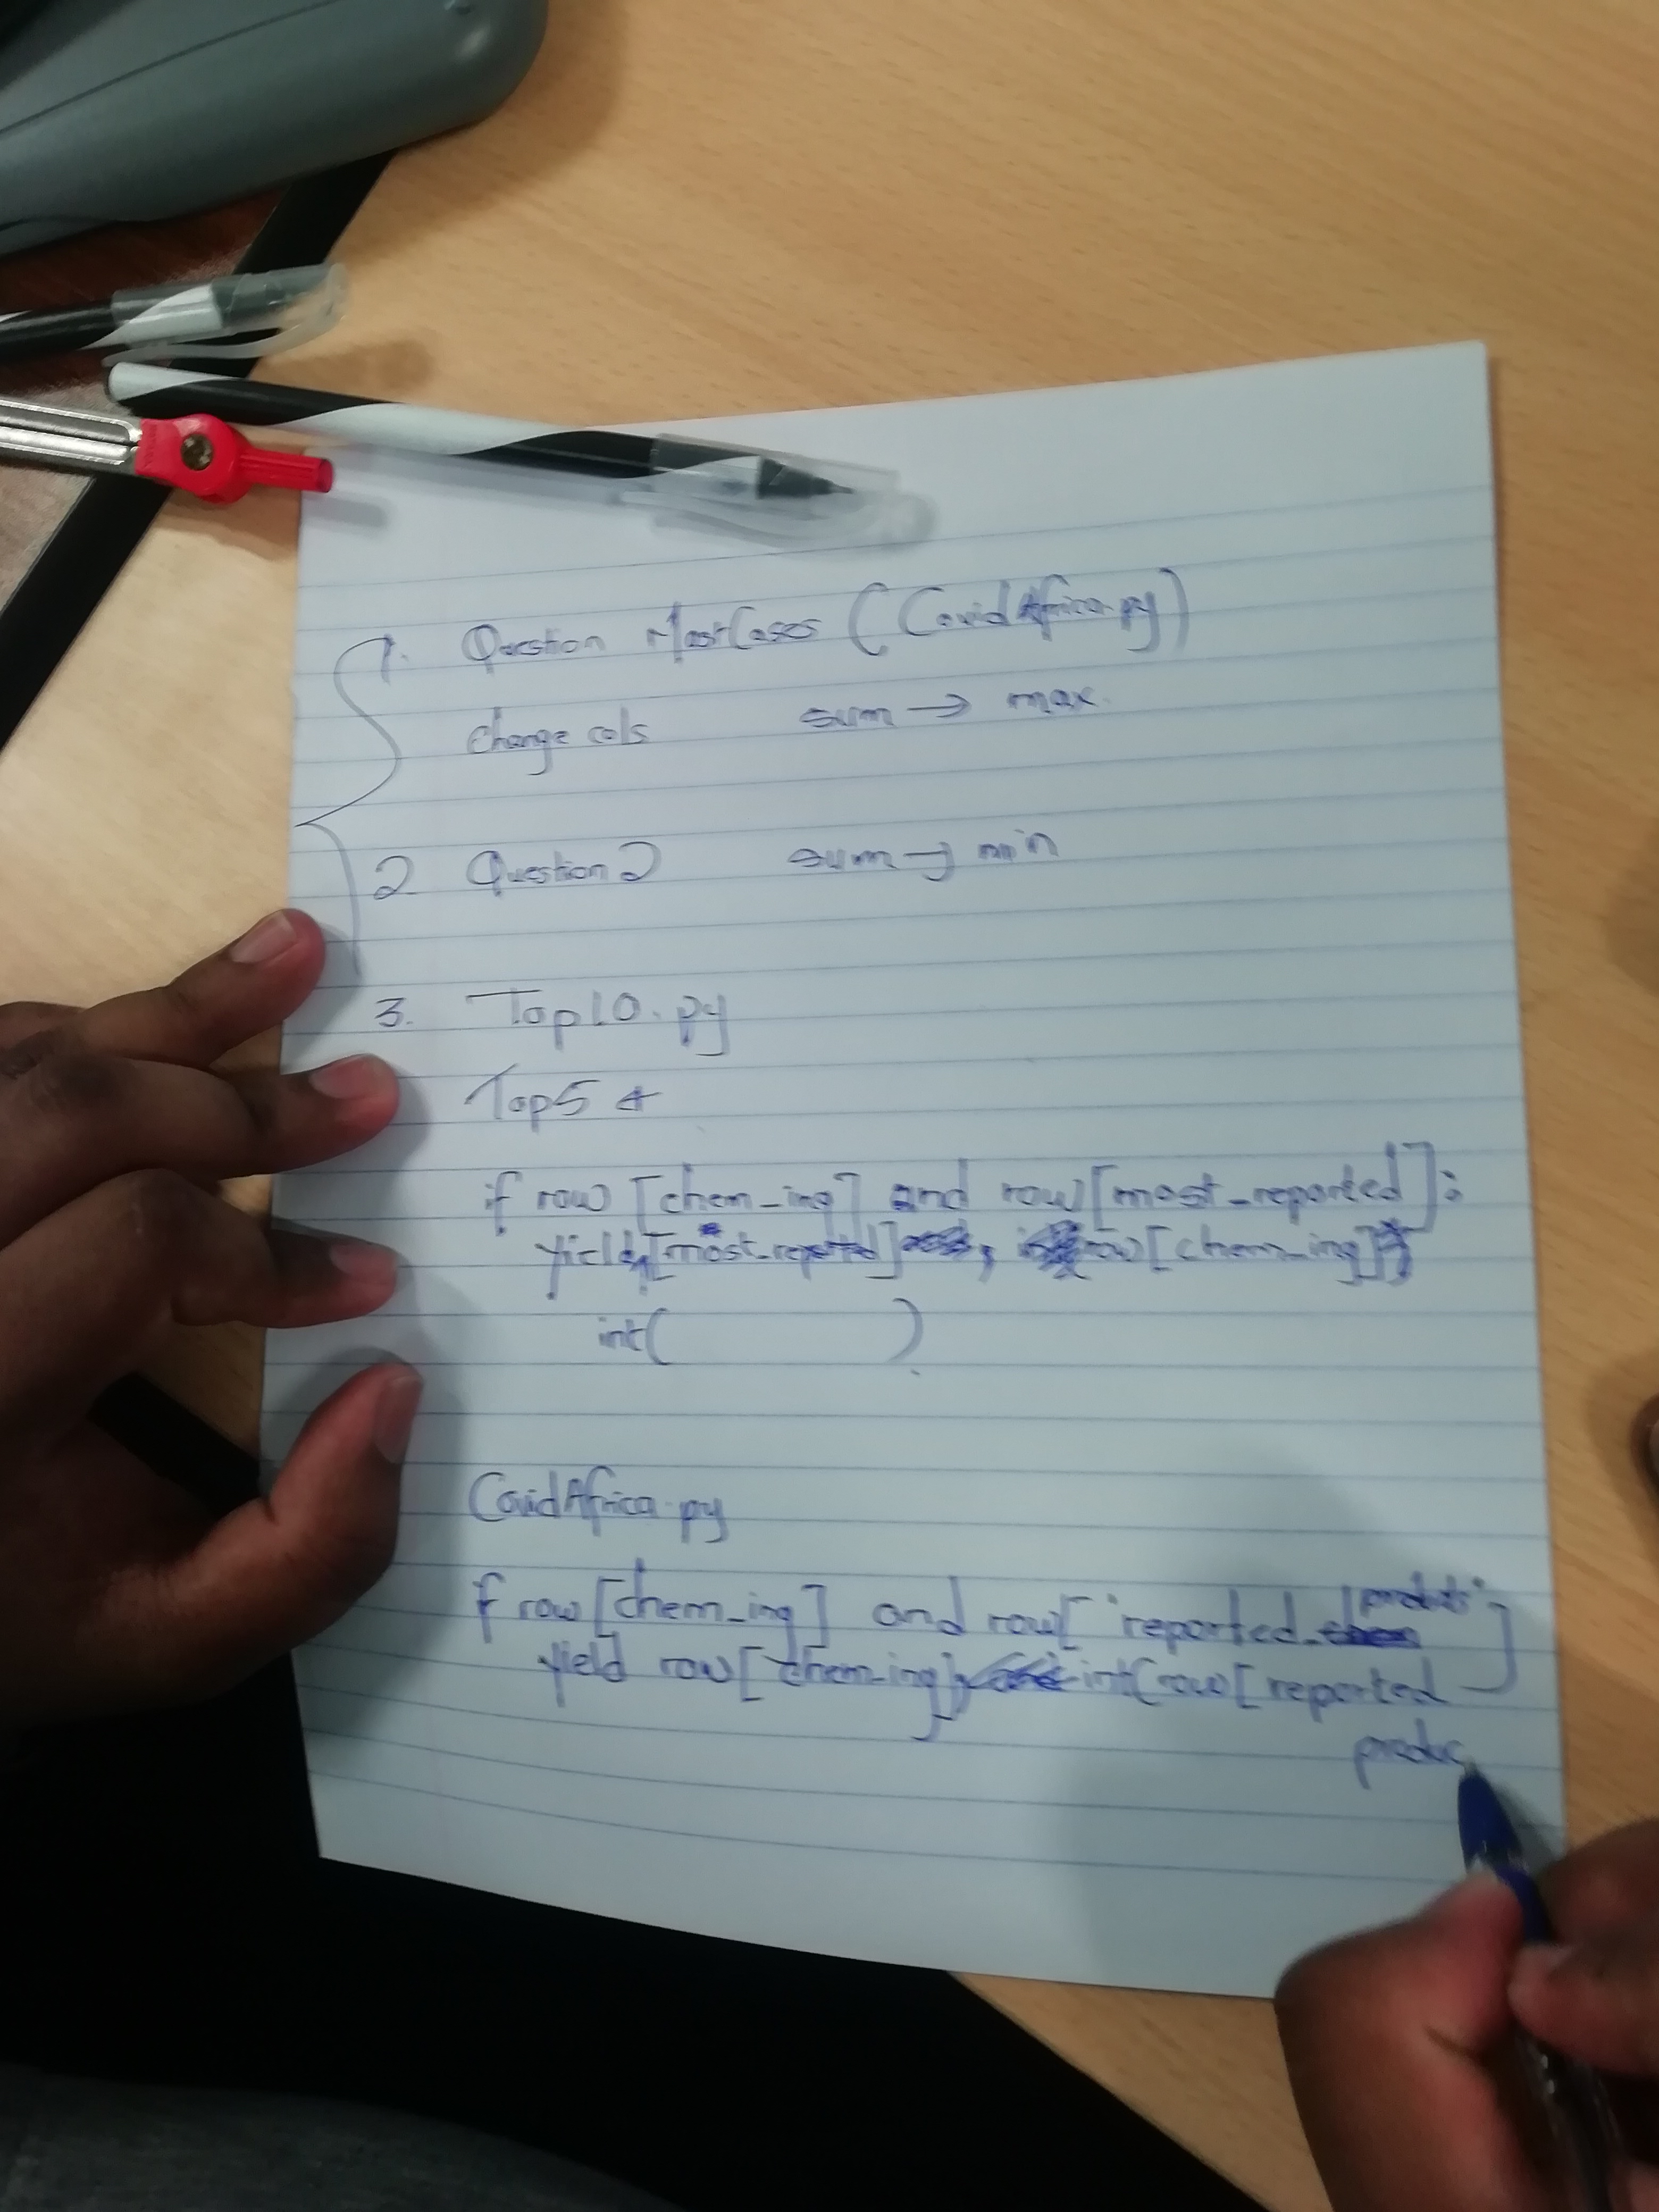 1. Question MostCases (CovidAfrica.py)
change cols sum → max.
2 Question 2 sum → min
3. Top10.py
Top5
if row [chem_ing] and row[most_reported]:
yield [most_reported] , row[chem_ing]
int( )
CovidAfrica.py
if row [chem_ing] and row['reported_products']
yield row[chem_ing], int(row[reported
produc